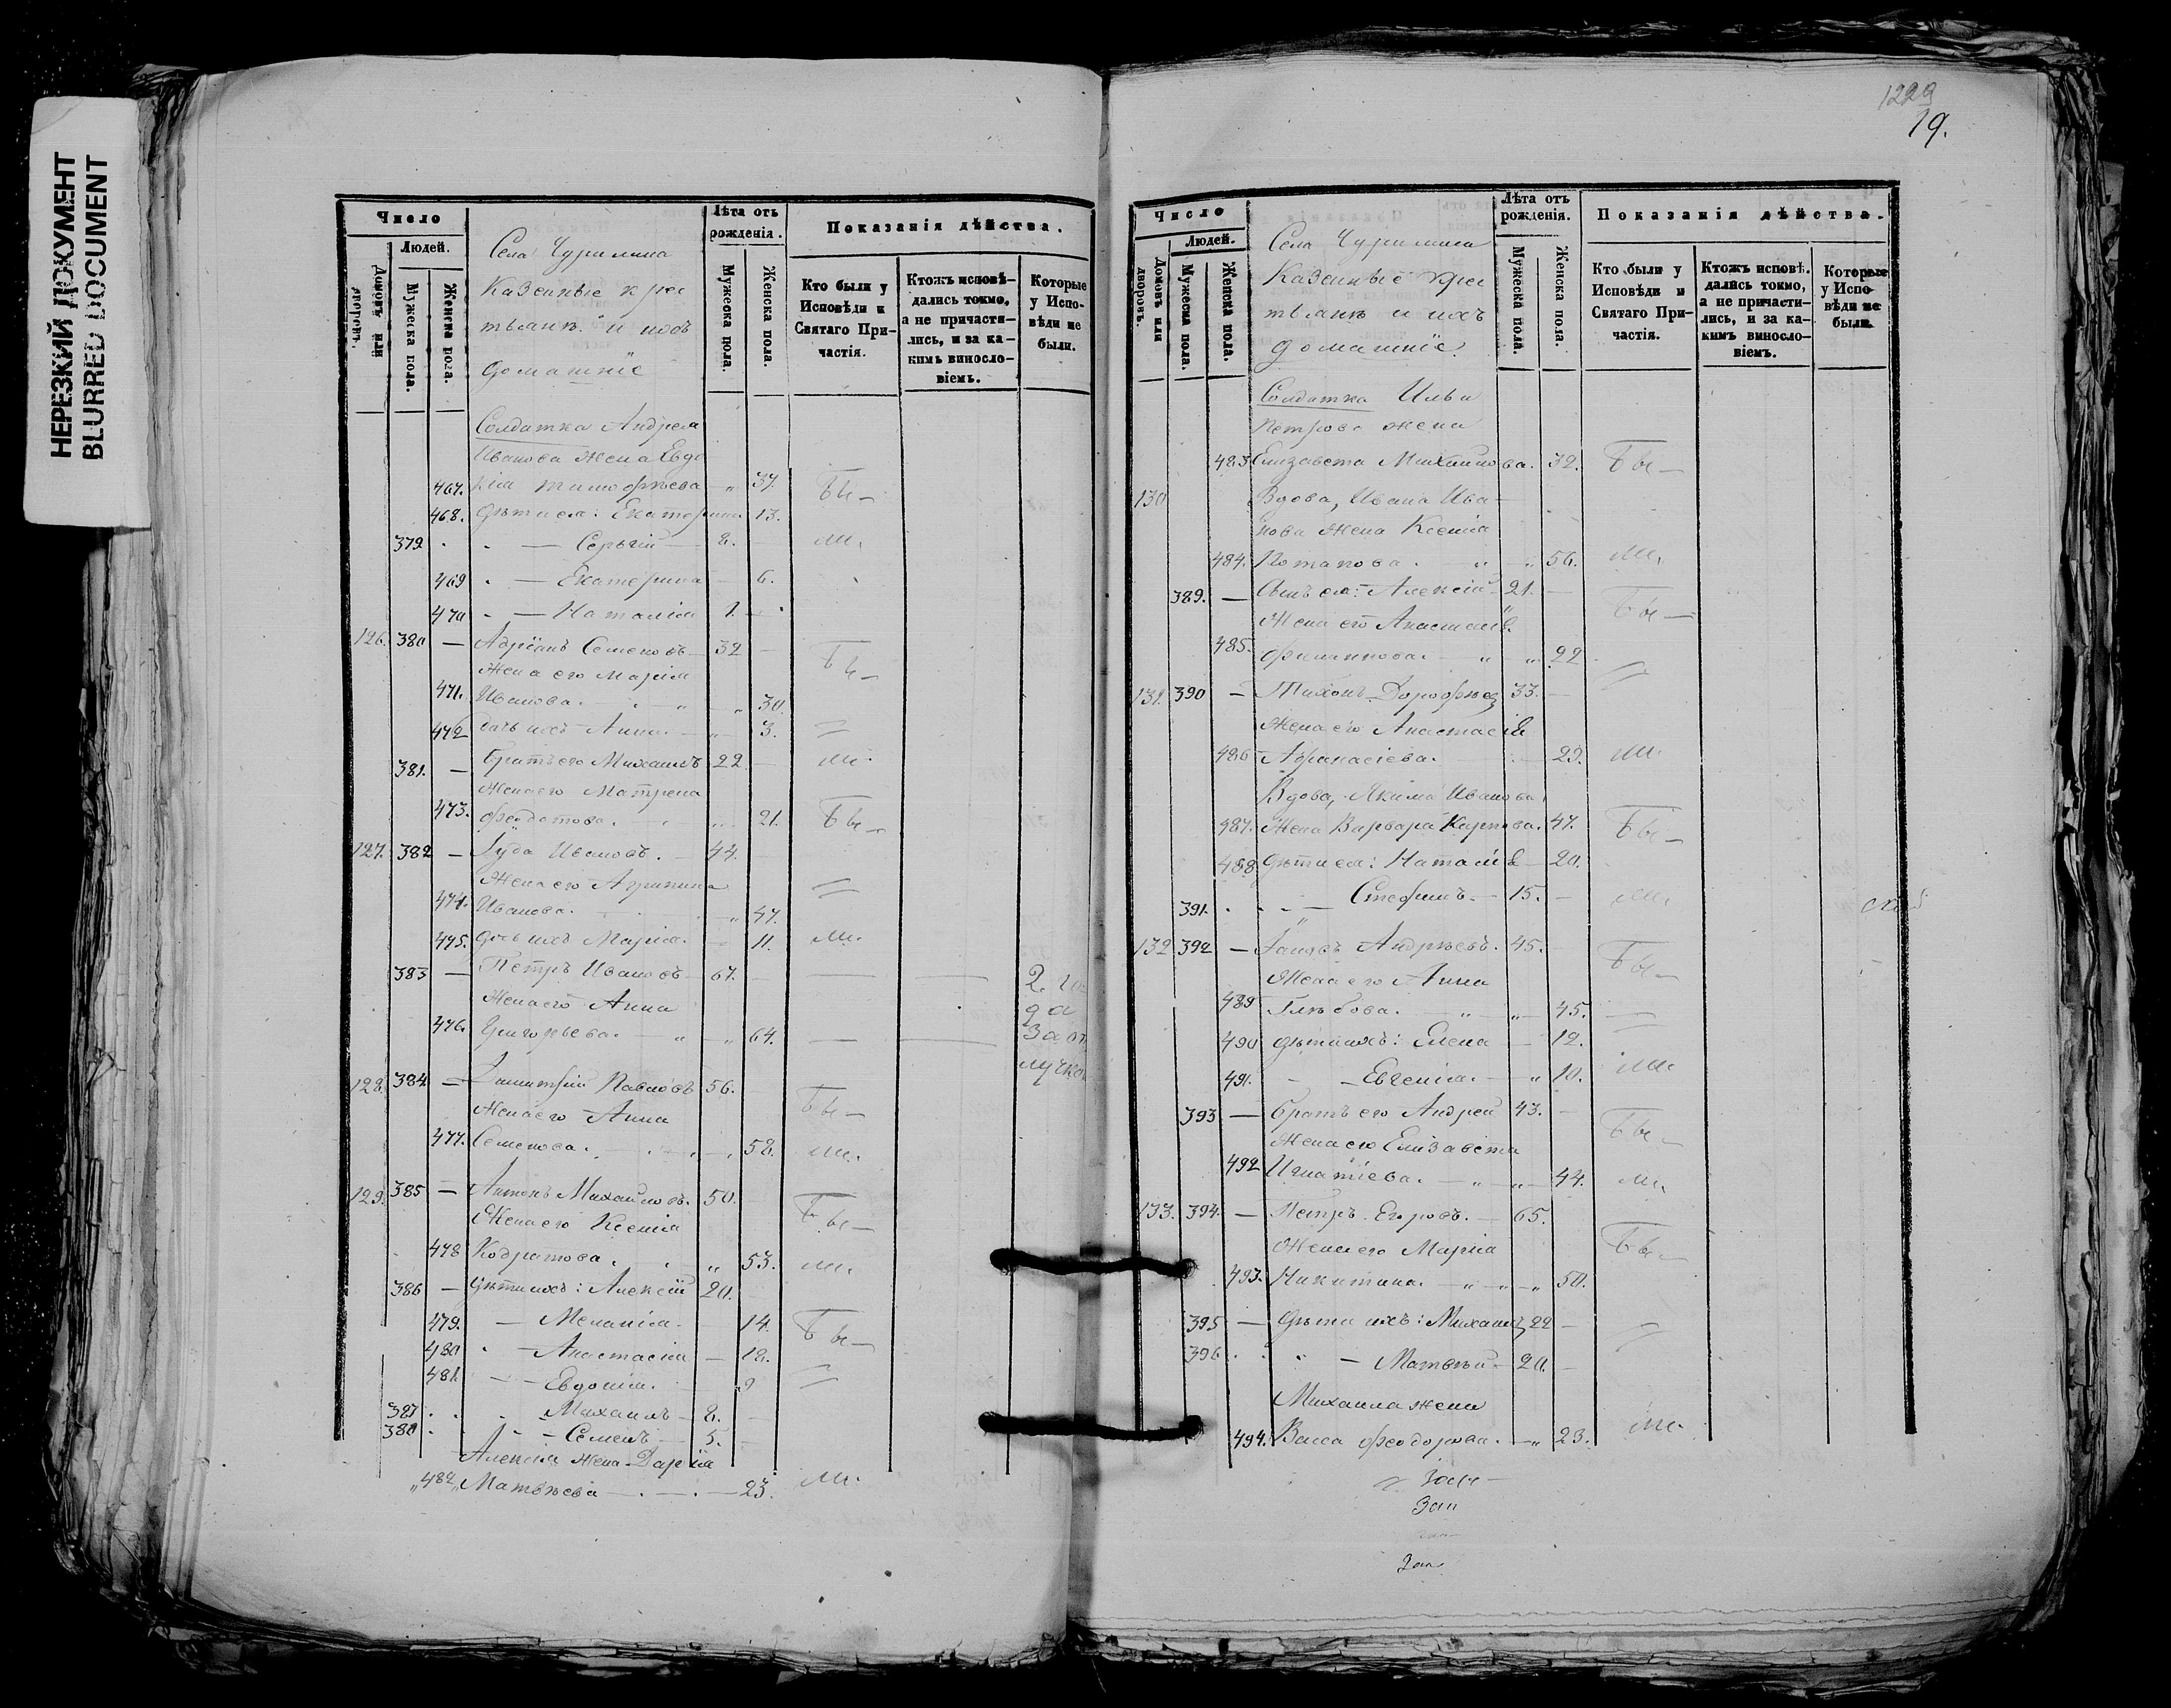 НЕРЕЗКИЙ ДОКУМЕНТ
BLURRED DOCUMENT
Число
Людей.
Домовъ или дворовъ.
Мужеска пола.
Женска пола.
Села Чурилина
Казенные крес
тьяне и ихъ
домашніе
Лѣта отъ рожденія.
Мужеска пола.
Женска пола.
Показанія дѣйства.
Кто были у Исповѣди и Святаго Причастія.
Ктожъ исповѣдались токмо, а не причастились, и за какимъ винословіемъ.
Которые у Исповѣди не были.
Солдатка Андрея
Иванова жена Евдо
467. кія Тимофѣева 37. Бы
468. дѣти ея: Екатерина 13.
379 Сергій 8. ли.
469 Екатерина 6.
470 Наталія 1.
126. 380 Адріанъ Семеновъ 32 Бы
Жена его Марія
471. Иванова. 30.
472 дочь ихъ Анна 3.
381. Братъ его Михаилъ 22
Жена его Матрена
473. Феодотова. 21. Бы
127. 382 Іуда Ивановъ. 44.
Жена его Агрипина
474. Иванова. 47.
475. дочь ихъ Марія. 11.
383 Петръ Ивановъ 67. 2 го
Жена его Анна да
476. Григорьева. 64. за от
лучко
128. 384 Димитрій Павловъ 56. Бы
Жена его Анна
477. Семенова. 58.
129. 385 Антонъ Михайловъ. 50. Бы
Жена его Ксенія
478 Кодратова. 53.
386 дѣти ихъ: Алексій 20.
479. Меланія. 14. Бы
480 Анастасія 12.
481. Евдокія. 9
387 Михаилъ 8.
388 Семенъ 5.
Алексія жена Дарія
482 Матвѣева 23.
1229
19.
Число
Людей.
Домовъ или дворовъ.
Мужеска пола.
Женска пола.
Села Чурилина
Казенные крес
тьяне и ихъ
домашніе.
Лѣта отъ рожденія.
Мужеска пола.
Женска пола.
Показанія дѣйства.
Кто были у Исповѣди и Святаго Причастія.
Ктожъ исповѣдались токмо, а не причастились, и за какимъ винословіемъ.
Которые у Исповѣди не были.
Солдатка Ильи
Петрова жена
483 Елизавета Михайлова. 32. Бы
130 Вдова, Ивана Ива
нова жена Ксенія
484. Потапова. 56.
389. Сынъ ея: Алексій 21. Бы
Жена его Анастасія
485. Филиппова. 22
131. 390 Тихонъ Дорофѣев 33.
Жена его Анастасія
486 Афанасіева. 23.
Вдова, Якима Иванова
487. Жена Варвара Карпова. 47. Бы
488 дѣти ея: Наталія 20.
391. Стефанъ. 15.
132 392 Іаковъ Андрѣевъ. 45. Бы
Жена его Анна
489 Глѣбова. 45.
490 дѣти ихъ: Елена 12.
491. Евгенія. 10.
393 братъ его Андрей 43. Бы
Жена его Елизавета
492 Игнатіева. 44.
133. 394. Петръ Егоровъ. 65. Бы
Жена его Марія
493. Никитина. 50.
395 дѣти ихъ: Михаилъ 22
396 Матвѣй 20.
Михаила жена
494. Васса Феодорова. 23.